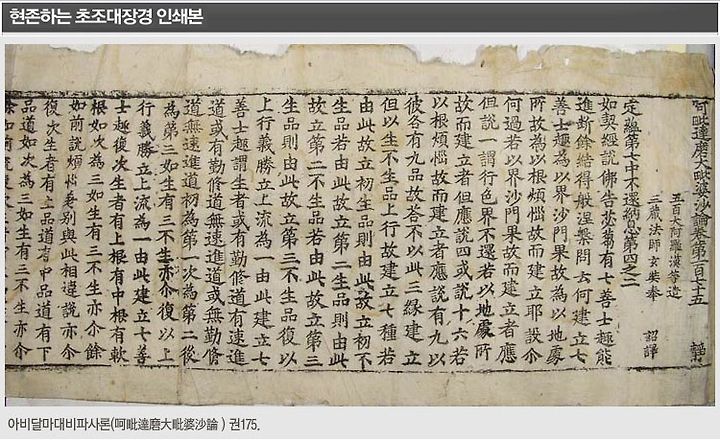 현존하는 초조대장경 인쇄본
阿毗達磨大毗婆沙論卷第一百七十五
五百大阿羅漢等造
三藏法師玄奘奉 詔譯
定蘊第七中不還納息第四之二
如契經說佛告苾芻有七善士趣能
進斷餘結得般涅槃問云何建立七
善士趣為以界沙門果故為以地處
所故為以根煩惱故而建立耶設尒
何過若以界沙門果故而建立者應
但說一謂行色界不還若以地處所
故而建立者但應說四或說十六若
以根煩惱故而建立者應說有九以
彼各有九品故荅不以此三緣建立
但以生不生品上行故建立七種若
由此故立初生品則由此故立初不
生品若由此故立第二生品則由此
故立第二不生品若由此故立第三
生品則由此故立第三不生品復以
上行義勝立上流為一由此建立七
善士趣謂生者或有勤修道有速進
道或有勤修道無速進道或無勤修
道無速進道初為第一次為第二後
為第三如生有三不生亦尒復以上
行義勝立上流為一由此建立七善
士趣復次生者有上根有中根有軟
根如次為三如生有三不生亦尒餘
如前說煩惱差別與此相違說亦尒
復次生者有上品道有中品道有下
品道如次為三如生有三不生亦尒
아비달마대비파사론(呵毗達磨大毗婆沙論) 권175.